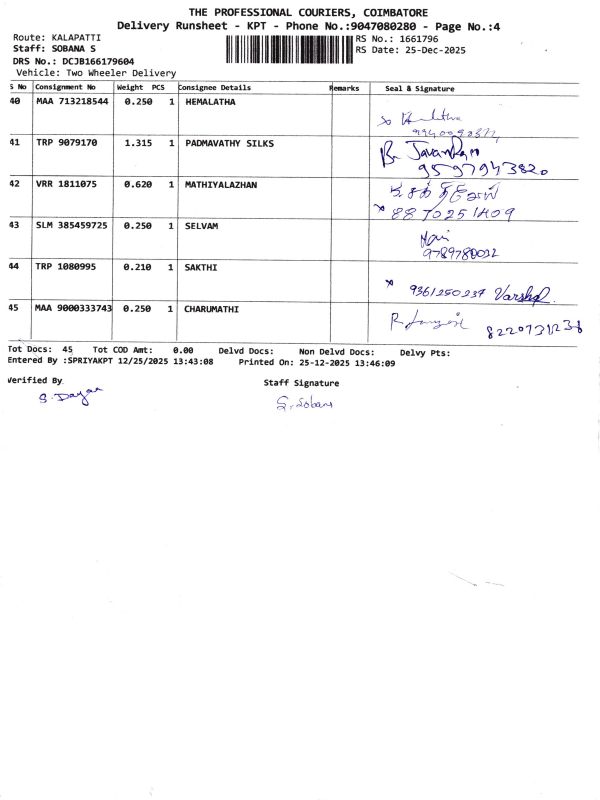 THE PROFESSIONAL COURIERS, COIMBATORE
Delivery Runsheet - KPT - Phone No.:9047080280 - Page No.:4
Route: KALAPATTI
RS No.: 1661796
Staff: SOBANA S
RS Date: 25-Dec-2025
DRS No.: DCJB166179604
Vehicle: Two Wheeler Delivery
S No Consignment No Weight PCS Consignee Details Remarks Seal & Signature
40 MAA 713218544 0.250 1 HEMALATHA
41 TRP 9079170 1.315 1 PADMAVATHY SILKS
9597943820
42 VRR 1811075 0.620 1 MATHIYALAZHAN
8870251409
43 SLM 385459725 0.250 1 SELVAM
9789780032
44 TRP 1080995 0.210 1 SAKTHI
9361250237 Varsha
45 MAA 9000333743 0.250 1 CHARUMATHI
8220731236
Tot Docs: 45 Tot COD Amt: 0.00 Delvd Docs: Non Delvd Docs: Delvy Pts:
Entered By :SPRIYAKPT 12/25/2025 13:43:08 Printed On: 25-12-2025 13:46:09
Verified By
Staff Signature
S. Dayan
S. Sobana